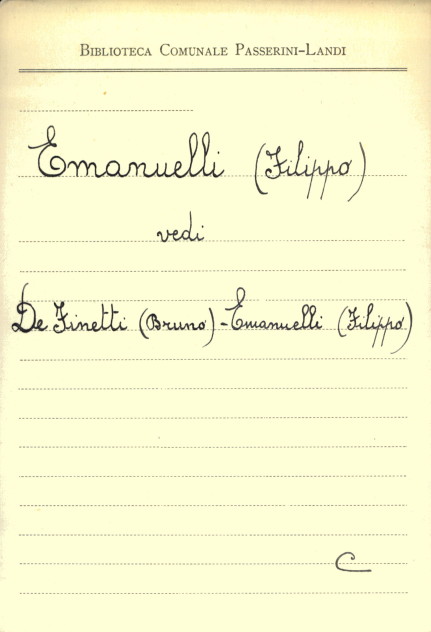 Biblioteca Comunale Passerini-Landi
Emanuelli (Filippo)
vedi
De Finetti (Bruno)-Emanuelli (Filippo)
C